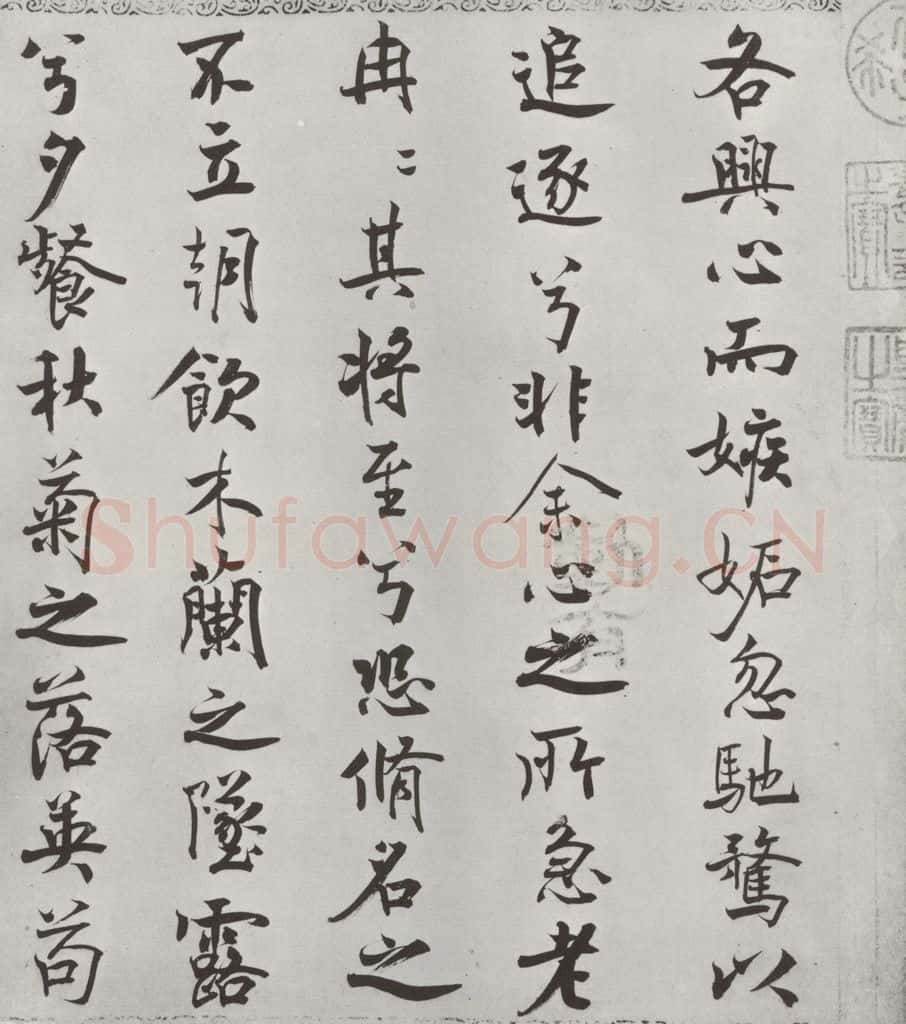 各興心而嫉妬忽馳騖以
追逐兮非余心之所急老
冉〻其將至兮恐脩名之
不立朝飲木蘭之墜露
兮夕餐秋菊之落英苟
Shufawang.CN